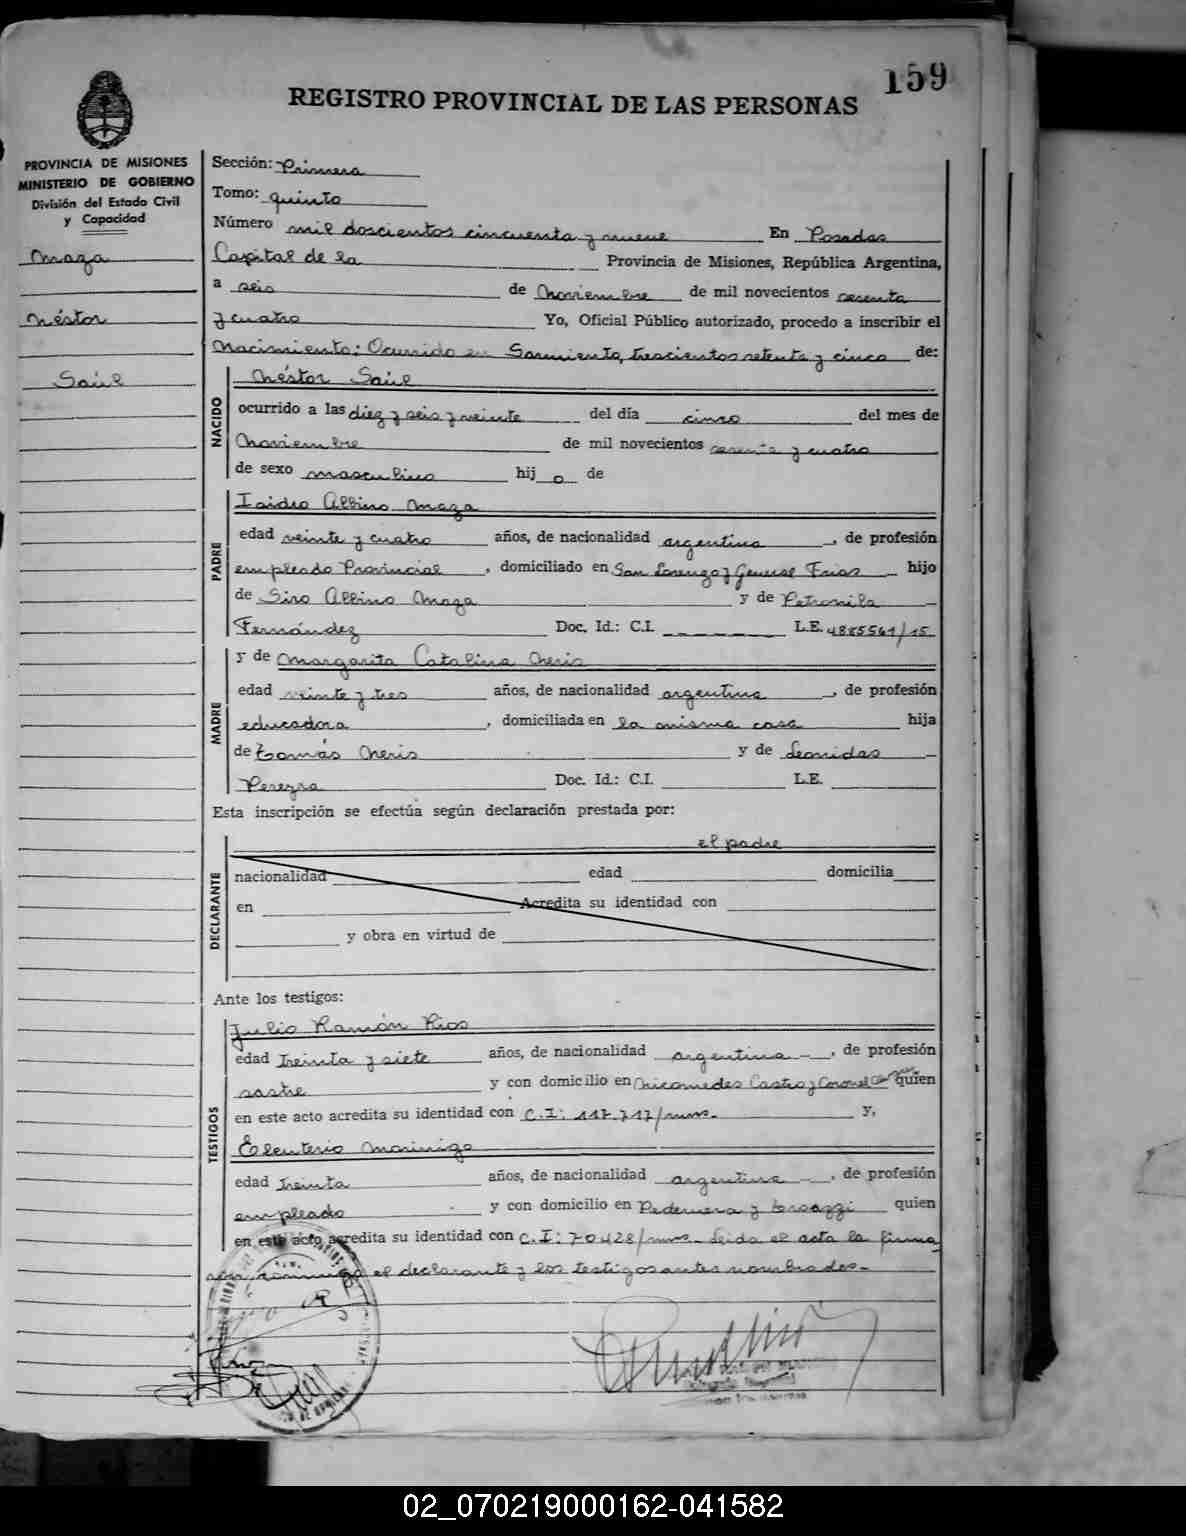 159
REGISTRO PROVINCIAL DE LAS PERSONAS
PROVINCIA DE MISIONES
MINISTERIO DE GOBIERNO
División del Estado Civil
y Capacidad
Maza
Néstor
Saúl
Sección: Primera
Tomo: quinto
Número mil doscientos cincuenta y nueve En Posadas
Capital de la Provincia de Misiones, República Argentina,
a seis de Noviembre de mil novecientos sesenta
y cuatro Yo, Oficial Público autorizado, procedo a inscribir el
Nacimiento: Ocurrido en Sarmiento, trescientos setenta y cinco de:
NACIDO
Néstor Saúl
ocurrido a las diez y seis y veinte del día cinco del mes de
Noviembre de mil novecientos sesenta y cuatro
de sexo masculino hij o de
PADRE
Isidro Albino Maza
edad veinte y cuatro años, de nacionalidad argentina, de profesión
empleado Provincial, domiciliado en San Lorenzo y General Frias hijo
de Siro Albino Maza y de Petronila
Fernández Doc. Id.: C.I. L.E. 4885561/15
MADRE
y de Margarita Catalina Neris
edad veinte y tres años, de nacionalidad argentina, de profesión
educadora, domiciliada en la misma casa hija
de Tomás Neris y de Leonidas
Pereyra Doc. Id.: C.I. L.E.
Esta inscripción se efectúa según declaración prestada por:
DECLARANTE
el padre
nacionalidad edad domicilia
en Acredita su identidad con
y obra en virtud de
Ante los testigos:
TESTIGOS
Julio Ramón Rios
edad treinta y siete años, de nacionalidad argentina, de profesión
sastre y con domicilio en Nicomedes Castro y Coronel quien
en este acto acredita su identidad con C.I: 117.717/mns. y,
Eleuterio Marinigo
edad treinta años, de nacionalidad argentina, de profesión
empleado y con domicilio en Pedernera y quien
en este acto acredita su identidad con C.I: 70428/mns. Leida el acta la firma
el declarante y los testigos antes nombrados.-
02_070219000162-041582